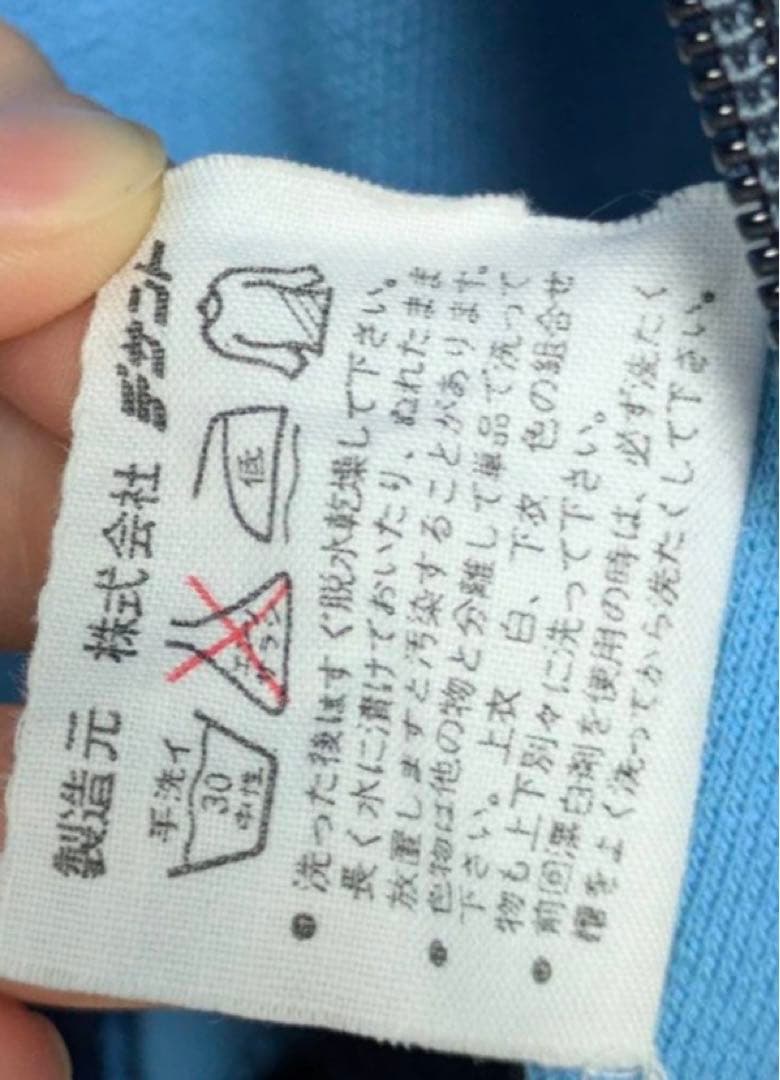 製造元 株式会社 デサント
手洗イ
30
中性
エンソ
サラシ
低
洗った後はすぐ脱水乾燥して下さい。
長く水に漬けておいたり、ぬれたまま
放置しますと汚染することがあります。
色物は他の物と分離して単品で洗って
下さい。上衣 白、下衣 色の組合せ
物も上下別々に洗って下さい。
前回漂白剤を使用の時は、必ず洗たく
槽をよく洗ってから洗たくして下さい。